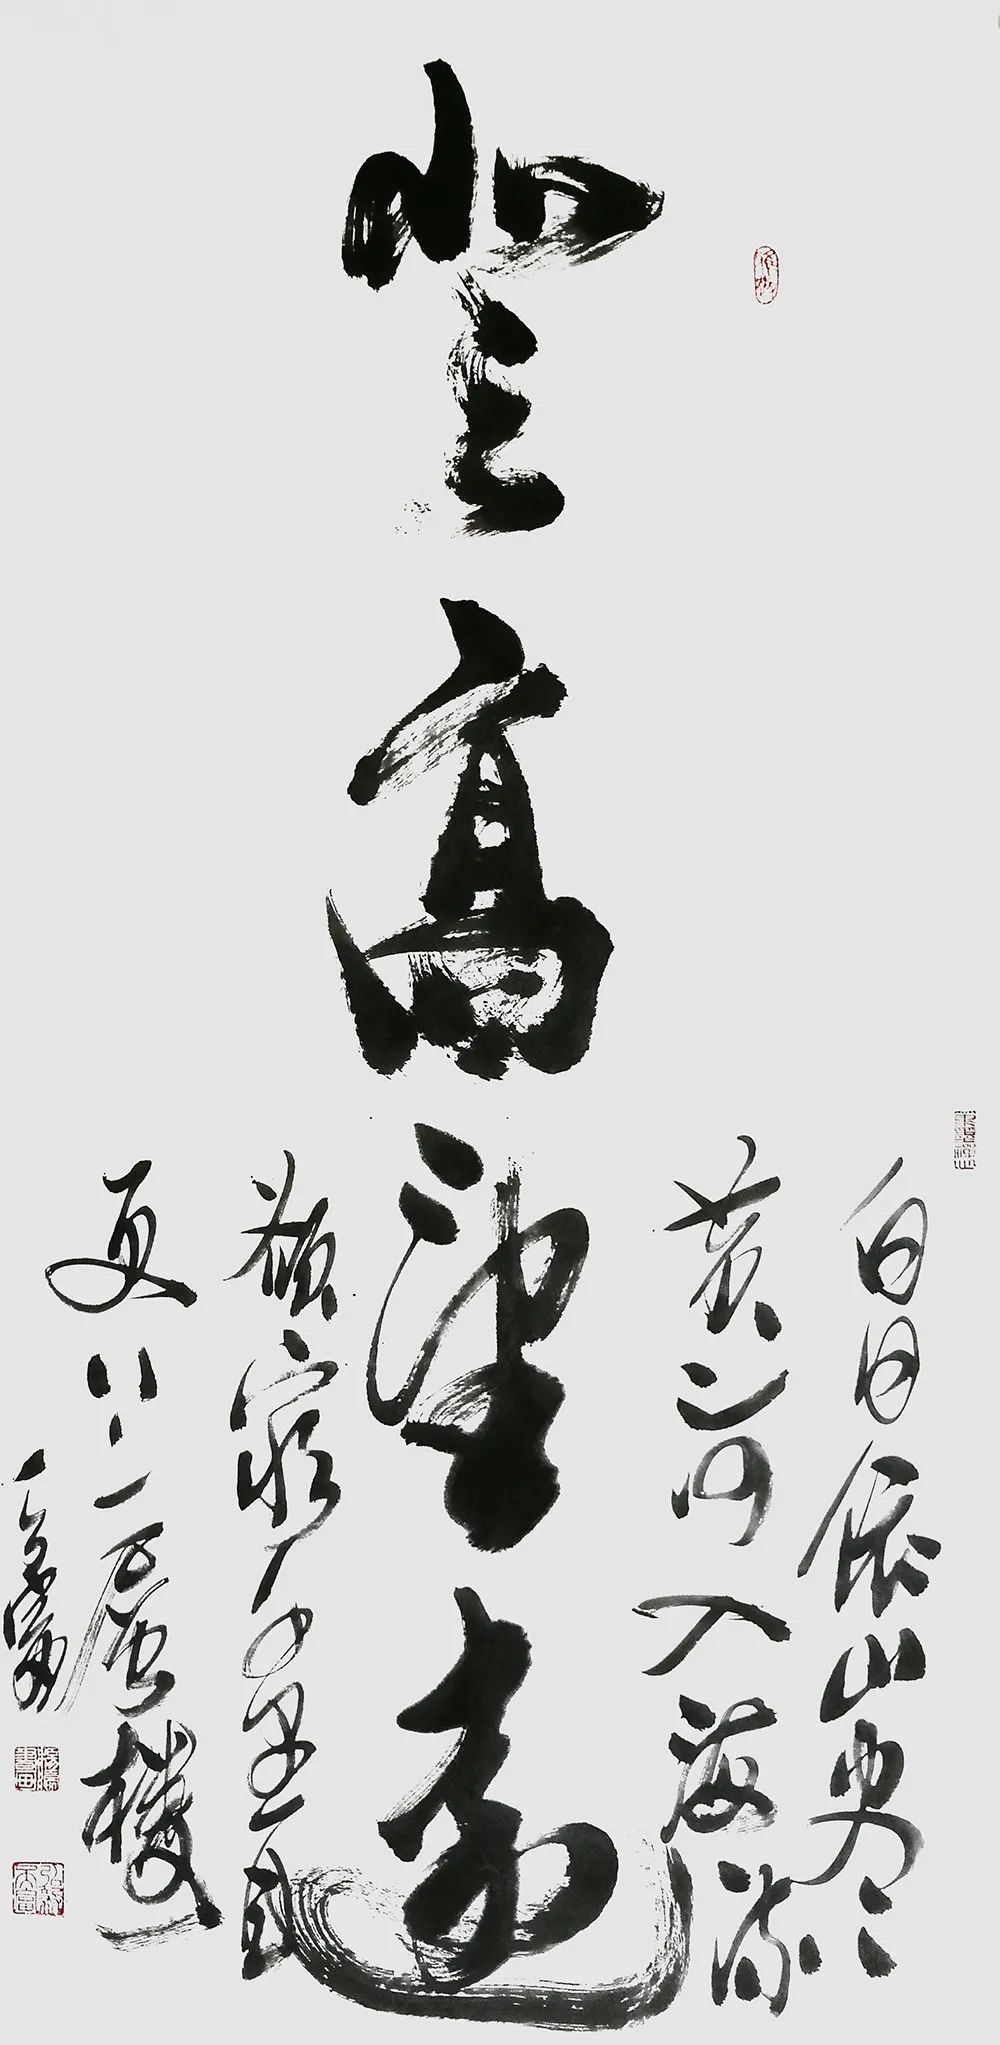 登高望遠
白日依山尽
黄河入海流
欲穷千里目
更上一層樓